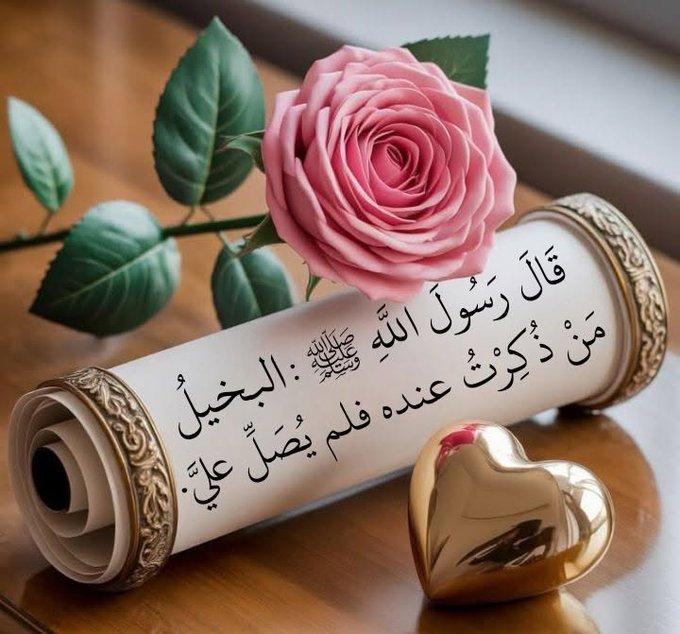 قَالَ رَسُولَ اللَّهِ ﷺ : البخيلُ
مَنْ ذُكِرْتُ عنده فلم يُصَلِّ عليَّ.